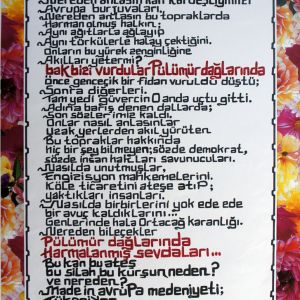 Avrupa burjuvaları,
Nereden anlasın bu topraklarda
Harman olmuş halkın;
Aynı ağıtlarla ağlayıp
Aynı türkülerle halay çektiğini.
Onların bu yürek zenginliğine
Akılları yetermi?
bak bizi vurdular Pülümür dağlarında
önce gencecik bir fidan vuruldu düştü;
Sonra diğerleri.
Tam yedi güvercin O anda uçtu gitti.
Adına barış denen dallarda;
Son sözlerimiz kaldı.
Onlar nasıl anlasınlar
Uzak yerlerden akıl yürüten
Bu topraklar hakkında
Hiç bir şey bilmeyen; sözde demokrat,
sözde insan hakları savunucuları.
Nasılda unutmuşlar,
Engizisyon mahkemelerini.
Köle ticaretini ateşe atıp;
yaktıkları insanları.
Nasılda birbirlerini yok ede ede
bir avuç kaldıklarını...
Genlerinde hala Ortaçağ karanlığı.
Nereden bilecekler
Pülümür dağlarında
Harmalanmış sevdaları...
Bu kan bu ateş
bu silah bu kurşun neden?
ve nereden?
Made in avruPa medeniyeti;